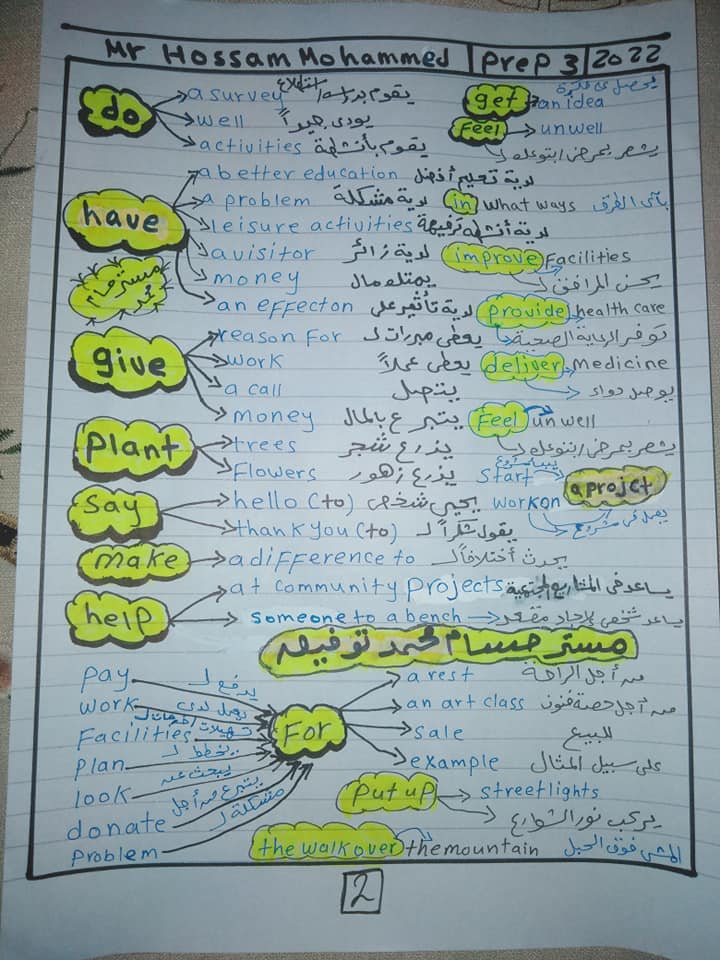 Mr Hossam Mohammed | Prep 3 | 2022
do
a survey يقوم بدراسة/استطلاع
well يودى جيداً
activities يقوم بأنشطة
get an idea يحصل على فكرة
Feel unwell
يشعر بمرض/بتوعك
have
a better education لدية تعليم أفضل
a problem لدية مشكلة
leisure activities لدية أنشطة ترفيهة
a visitor لدية زائر
money يمتلك مال
an effect on لدية تأثير على
in what ways بأى الطرق
improve Facilities
يحسن المرافق
provide health care
توفر الرعاية الصحية
deliver medicine
يوصل دواء
Feel unwell
يشعر بمرض/بتوعك
مستر حسام محمد
give
reason for يعطى مبررات لـ
work يعطى عملاً
a call يتصل
money يتبرع بالمال
plant
trees يزرع شجر
Flowers يزرع زهور
start a projct
work on
يعمل فى مشروع
say
hello (to) يحيى شخص
thank you (to) يقول شكراً لـ
make
a difference to يحدث أختلافاً لـ
help
at community projects يساعد فى المشاريع
someone to a bench يساعد شخص لإيجاد مقعد
مستر حسام محمد توفيق
pay يدفع لـ
work يعمل لدى
Facilities
plan يخطط لـ
look يبحث عن
donate يتبرع من أجل
problem مشكلة لـ
For
a rest من أجل الراحة
an art class من أجل حصة فنون
sale للبيع
example على سبيل المثال
put up streetlights
يركب نور الشوارع
the walk over the mountain المشى فوق الجبل
2